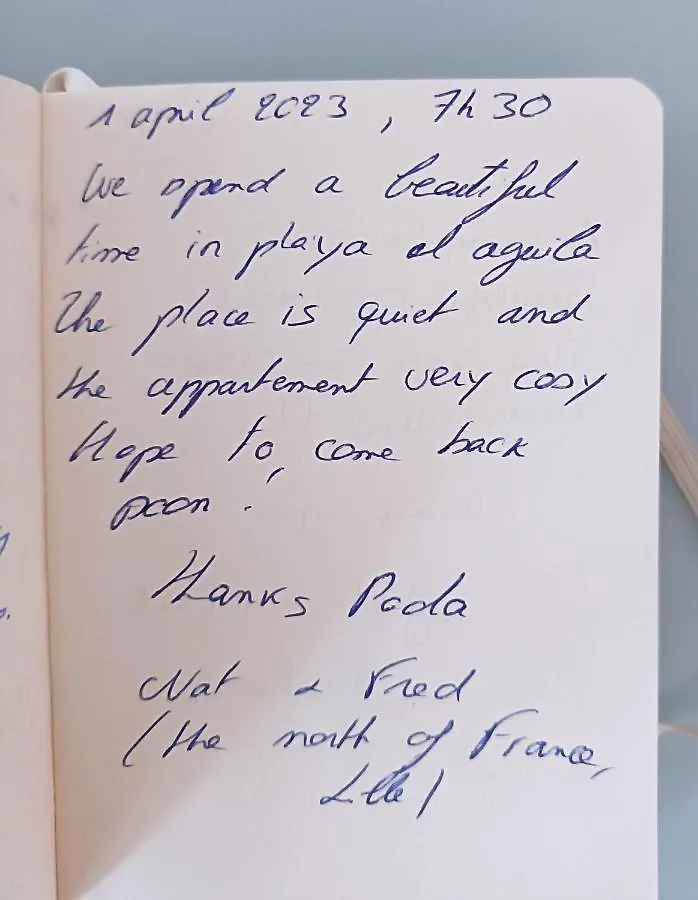 1 april 2023, 7h30
We spend a beautiful
time in playa el aguila
The place is quiet and
the appartement very cosy
Hope to come back
soon !
Thanks Paola
Nat & Fred
(the north of France,
Lille)